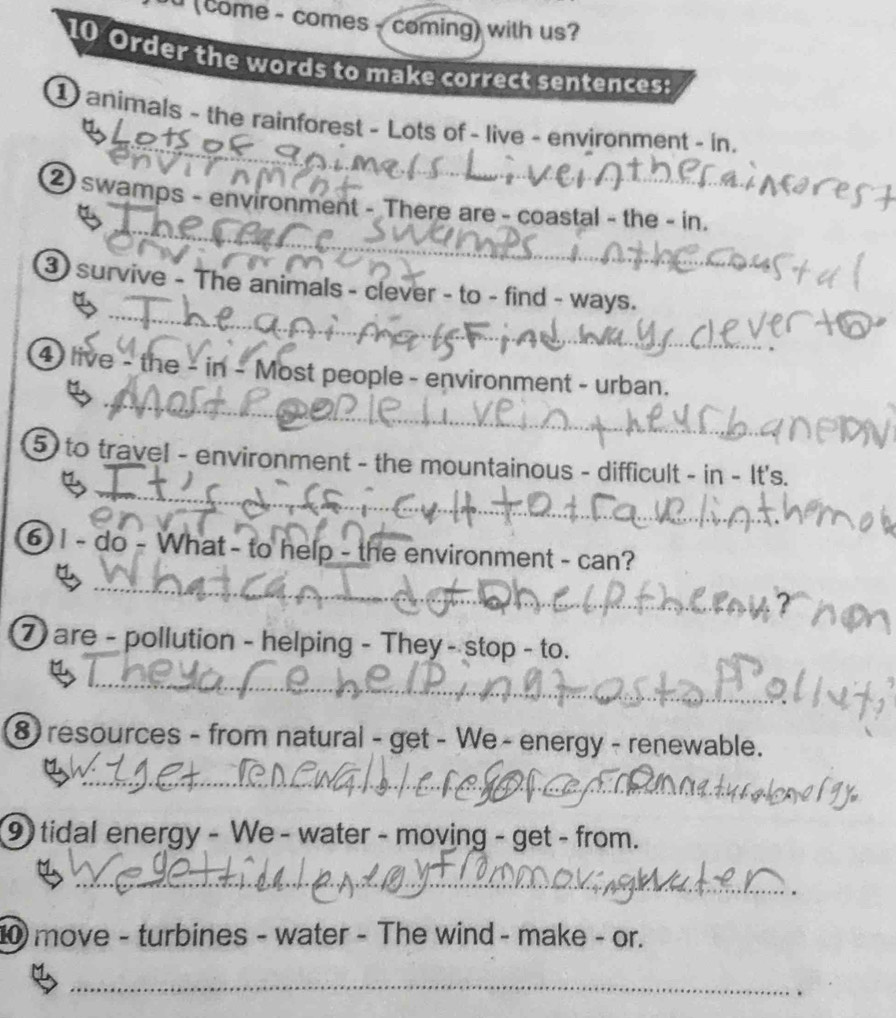 (come - comes - coming) with us?
10 Order the words to make correct sentences:
① animals - the rainforest - Lots of - live - environment - in.
Lots of animals Live in the rainforest
envirnment
② swamps - environment - There are - coastal - the - in.
There are swamps in the coustal
envirnment
③ survive - The animals - clever - to - find - ways.
The animals Find ways clever to
survire
④ live - the - in - Most people - environment - urban.
Most People live in the urban
⑤ to travel - environment - the mountainous - difficult - in - It's.
It's difficult to travel in the
envirnment
⑥ I - do - What - to help - the environment - can?
What can I do to help the ?
⑦ are - pollution - helping - They - stop - to.
They are helping to stop Polluti
⑧ resources - from natural - get - We - energy - renewable.
get renewable from natural energy.
⑨ tidal energy - We - water - moving - get - from.
We get tidal energy from moving water .
⑩ move - turbines - water - The wind - make - or.